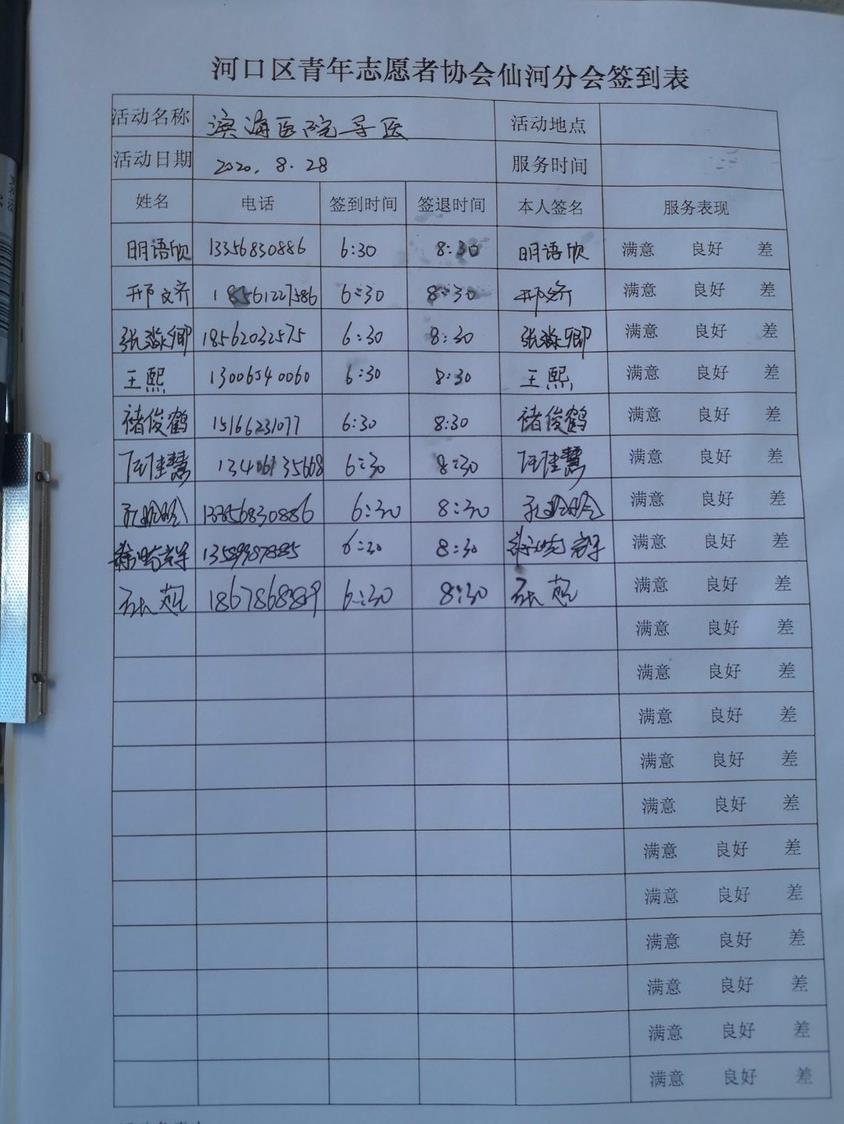 河口区青年志愿者协会仙河分会签到表
活动名称 滨海医院导医 活动地点
活动日期 2020.8.28 服务时间
姓名 电话 签到时间 签退时间 本人签名 服务表现
明语欣 13356830886 6:30 8:30 明语欣 满意 良好 差
邢文齐 18561227586 6:30 8:30 邢文齐 满意 良好 差
张淼卿 18562032575 6:30 8:30 张淼卿 满意 良好 差
王熙 13006540060 6:30 8:30 王熙 满意 良好 差
褚俊鹤 15166231077 6:30 8:30 褚俊鹤 满意 良好 差
佳慧 13406135668 6:30 8:30 佳慧 满意 良好 差
13356830886 6:30 8:30 满意 良好 差
6:30 8:30 满意 良好 差
6:30 8:30 满意 良好 差
满意 良好 差
满意 良好 差
满意 良好 差
满意 良好 差
满意 良好 差
满意 良好 差
满意 良好 差
满意 良好 差
满意 良好 差
满意 良好 差
满意 良好 差